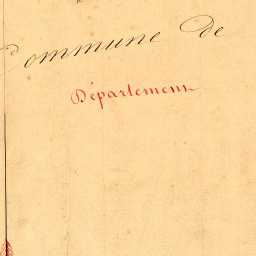 Commune de
Département